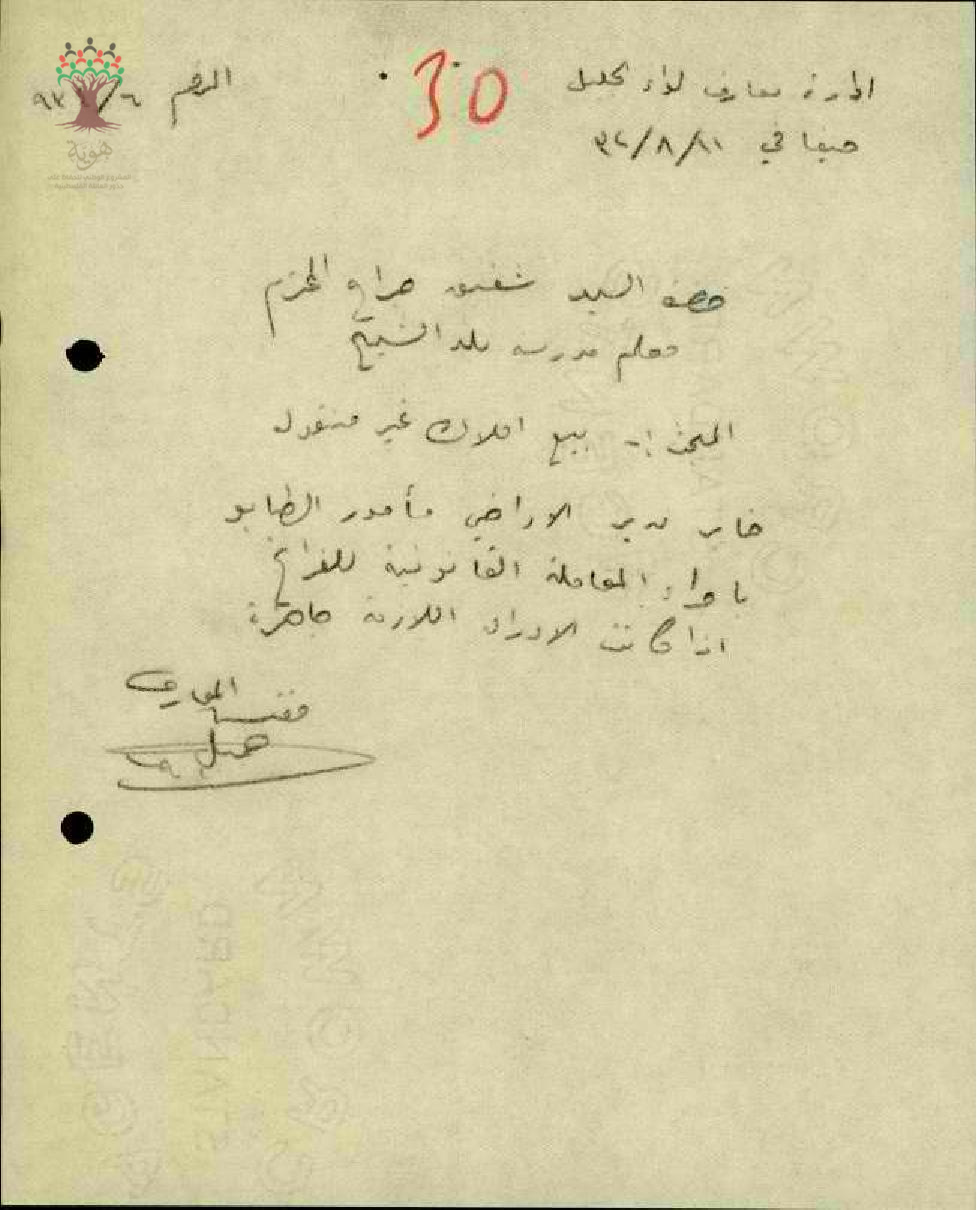 ادارة معارف لواء الجليل
حيفا في ٣٤/٨/٢١
الرقم ٦/
30
هوية
حضرة السيد شفيق جراح المحترم
معلم مدرسة بلد الشيخ
المبحث :- بيع املاك غير منقول
خابر مدير الاراضي مأمور الطابو
باجراء المعاملة القانونية للفراغ
اذا كانت الاوراق اللازمة جاهزة
مفتش المعارف
STANDARD